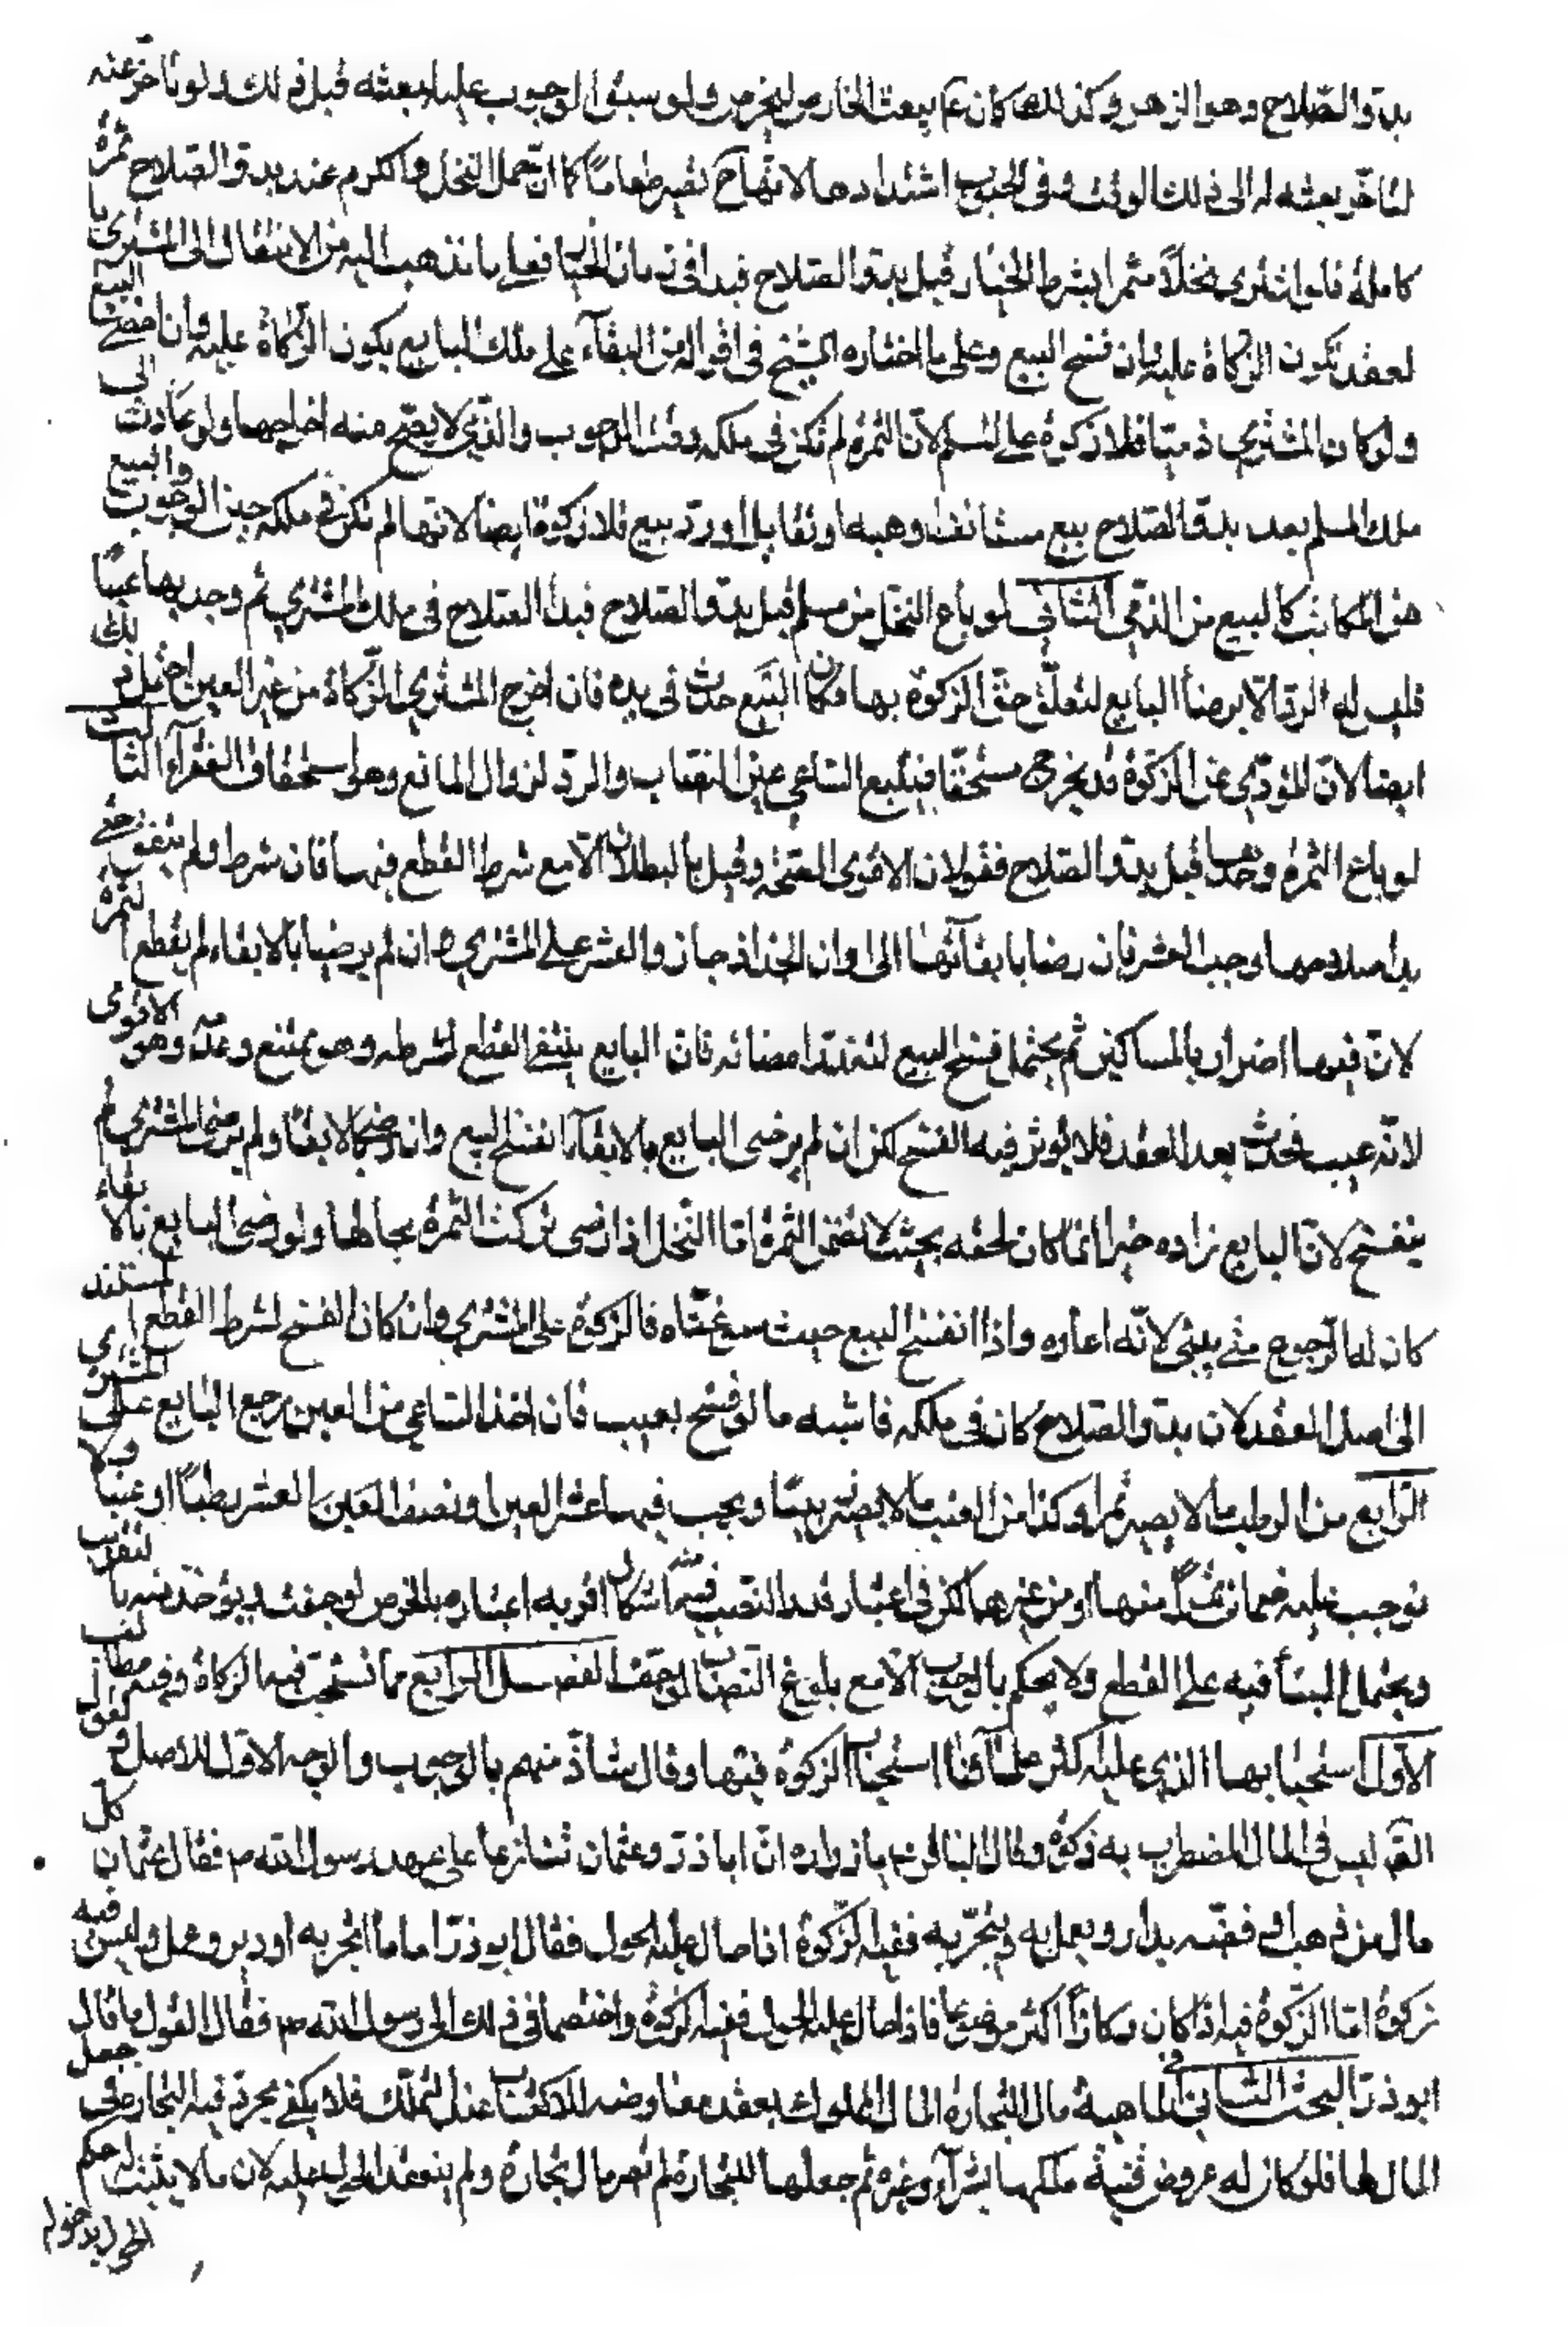 بدو الصّلاح وهو الزهو وكذلك كان ع يبعث الخارص ليخرص ولو سبق الوجوب عليه لبعثه قبل ذلك ولو تأخر عنه
لتأخر بعثه له الى ذلك الوقت وفى الحبوب اشتدادها لانّها ح تصير طعاماً كما ان حمل النخل والكرم عند بدو الصّلاح ثمرة
كاملة فلو اشترى نخلاً مثمرا بشرط الخيار قبل بدو الصلاح فبدا فى زمان الخيار فعلى ما نذهب اليه من الانتقال الى المشترى با
لعقد تكون الزكاة عليه وان فسخ البيع وعلى ما اختاره الشيخ فى اقواله من البقآء على ملك البايع يكون الزكاة عليه وان امضى البيع
ولو كان المشترى ذميّا فلا زكوة على المسلم لانّ الثمرة لم تكن فى ملكه وقت الوجوب والذّمى لا يصحّ منه اخراجها ولو عادت الى
ملك المسلم بعد بدو الصّلاح ببيع مستانف او هبه او تقايل او ردّ ببيع فلا زكوة ايضا لانها لم تكن فى ملكه حين الوجوب والبيع
من المكاتب كالبيع من الذمى الثانى لو باع النخل من مسلم قبل بدو الصّلاح فبدا الصّلاح فى ملك المشترى ثم وجد بها عيبًا
فليس له الرد الا برضا البايع لتعلّق حقّ الزكوة بها فكان العيب حدث فى يده فان اخرج المشترى الزّكاة من غير العين احتمل ذلك
ايضا لانّ المؤدّى عن الزكوة قد يخرج مستحقّا فيتبع السّاعى عين النصاب والرد لزوال المانع وهو استحقاق الفقرآء الثالث
لو باع الثمرة وحدها قبل بدو الصّلاح فقولان الاقوى الصّحّة وقيل بالبطلان الّا مع شرط القطع فيها فان شرط ولم يتفق حتّى
بدا صلاحها وجب العشر فان رضيا بابقآئها الى اوان الجذاذ جاز والعشر على المشترى وان لم يرضيا بالابقاء لم يقطع الثمرة
لانّ فيها اضرار بالمساكين ثم يحتمل فسخ البيع لتعذّر امضائه فانّ البايع يبتغى القطع لشرطه وهو ممتنع وعدمه وهو الاقوى
لانّه عيب فحدث بعد العقد فلا يؤثر فيه الفسخ لكن ان لم يرضى البايع بالابقآء انفسخ البيع وان رضى بالابقآ ولم يرض المشترى لم
ينفسخ لان البايع زاده خيرا انما كان لحقه بحيث لا تمتص الثمرة مآء النخل اذا رضى تركت الثمرة بحالها ولو رضى البايع بالابقاء
كان له الرّجوع متى شى لانّه اعاره واذا انفسخ البيع حيث سوّغناه فالزكوة على المشترى وان كان الفسخ لشرط القطع المستند
الى اصل العقد لان بدو الصّلاح كان فى ملكه فاشبه ما لو فسخ بعيب فان اخذ السّاعى من العين رجع البايع على المشترى
الرّابع من الرطب ما لا يصير تمرا وكذا من العنب ما لا يصير زبيبًا ويجب فيها عشر العين او نصف العين العشر رطبًا او عنبًا ولا
نوجب عليه ضمان تمرا منها او من غيرهما لكن فى اعتبار قدر النصيب منه اشكال اقربه اعتباره بالخرص لو جفت ويؤخذ منه بالتقريب
ويحتمل البنآ فيه على القطع ولا يحكم بالوجوب الّا مع بلوغ النصاب لو جفت الفصل الرابع فيما تستحب فيه الزكاة وفيه مطالب
الاوّل استحبابها الذى عليه اكثر علمآئنا استحباب الزكوة فيها وقال شاذّ منهم بالوجوب والوجه الاوّل للاصل ولقول
الصّ ليس فى المال المضطرب به زكوة وقال الباقر ع يا زرارة انّ اباذرّ وعثمان تنازعا على عهد رسول الله ص فقال عثمان كل
مال من ذهب او فضّه يدار ويعمل به ويتّجر به ففيه الزّكوة اذا حال عليه الحول فقال ابوذرّ اما ما اتّجر به او دير وعمل وليس فيه
زكوة انّما الزّكوة فيه اذا كان ركازًا اكثر موضوعا فاذا حال عليه الحول ففيه الزّكوة واختصما فى ذلك الى رسول الله ص فقال القول ما قال
ابوذرّ البحث الثانى فى ماهية مال التجارة المال المملوك بعقد معاوضه للاكتساب عند التملّك فلا يكفى مجرّد نية التجارة فى جعل
المال لها فلو كان له عروض قنية ملكها بشرآء وغيره ثم جعلها للتجارة لم تصر مال تجارة ولم ينعقد الحول عليه لان ما لا يثبت له حكم
الحول بدخوله